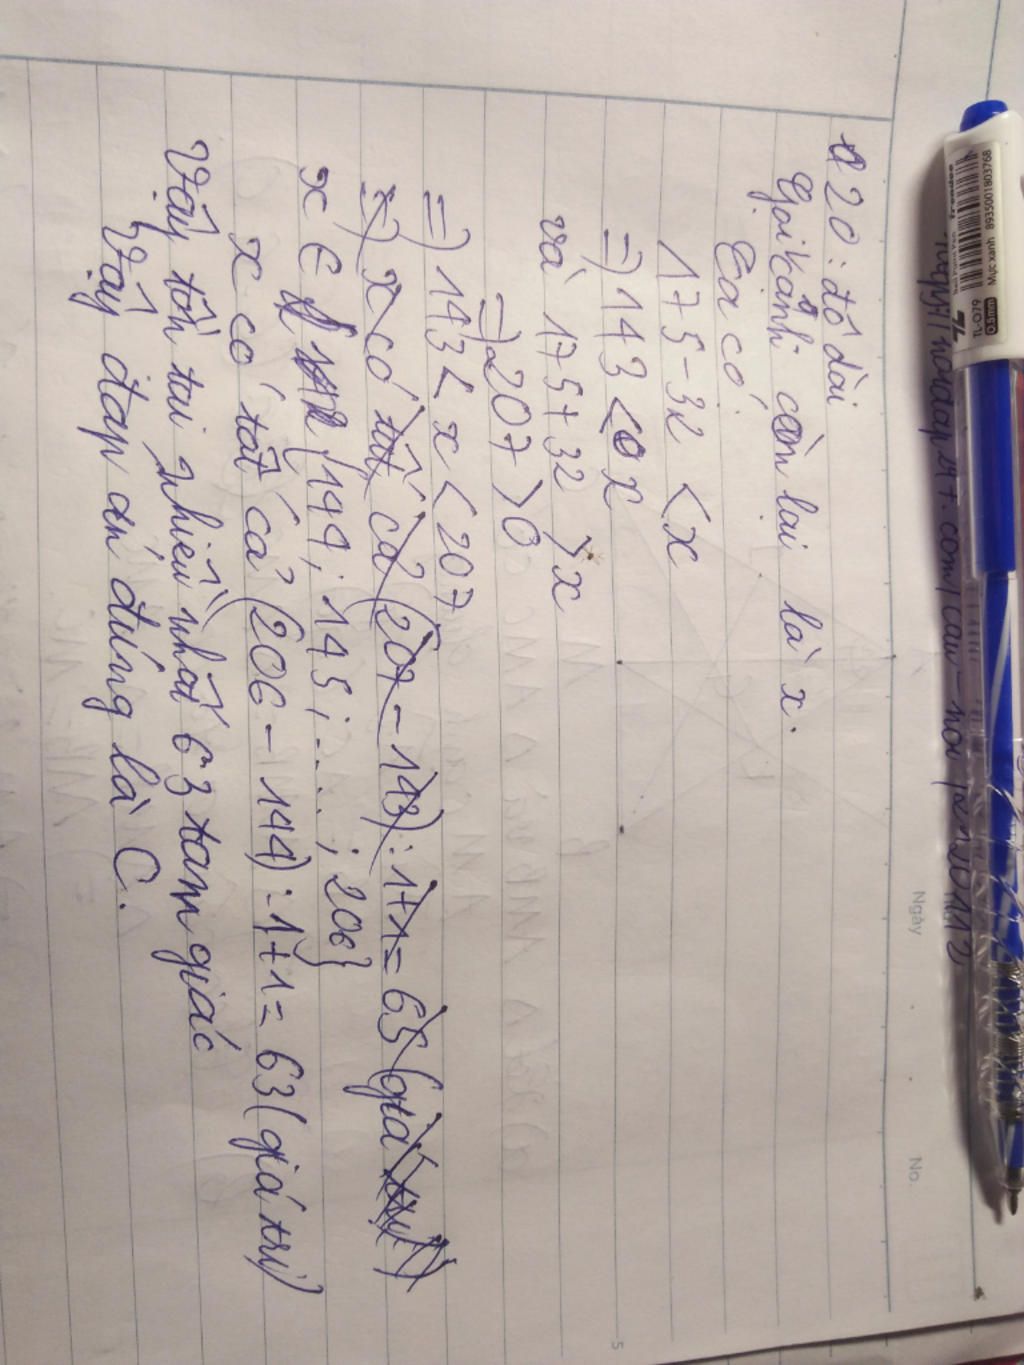 20: độ dài
Gọi cạnh còn lại là x.
Ta có:
175-32 < x
=) 143 < x
và 175+32 > x
=) 207 > 0
=) 143 < x < 207
=) x có tất cả (207-143):1+1= 65 (giá trị)
x ∈ {144; 145; ....; 206}
x có tất cả (206-144):1+1= 63 (giá trị)
Vậy tồn tại nhiều nhất 63 tam giác
Vậy đáp án đúng là C.
Ngày
No.
5
freedee
8935001803768
Mực xanh
TL-079
0.5mm
TL